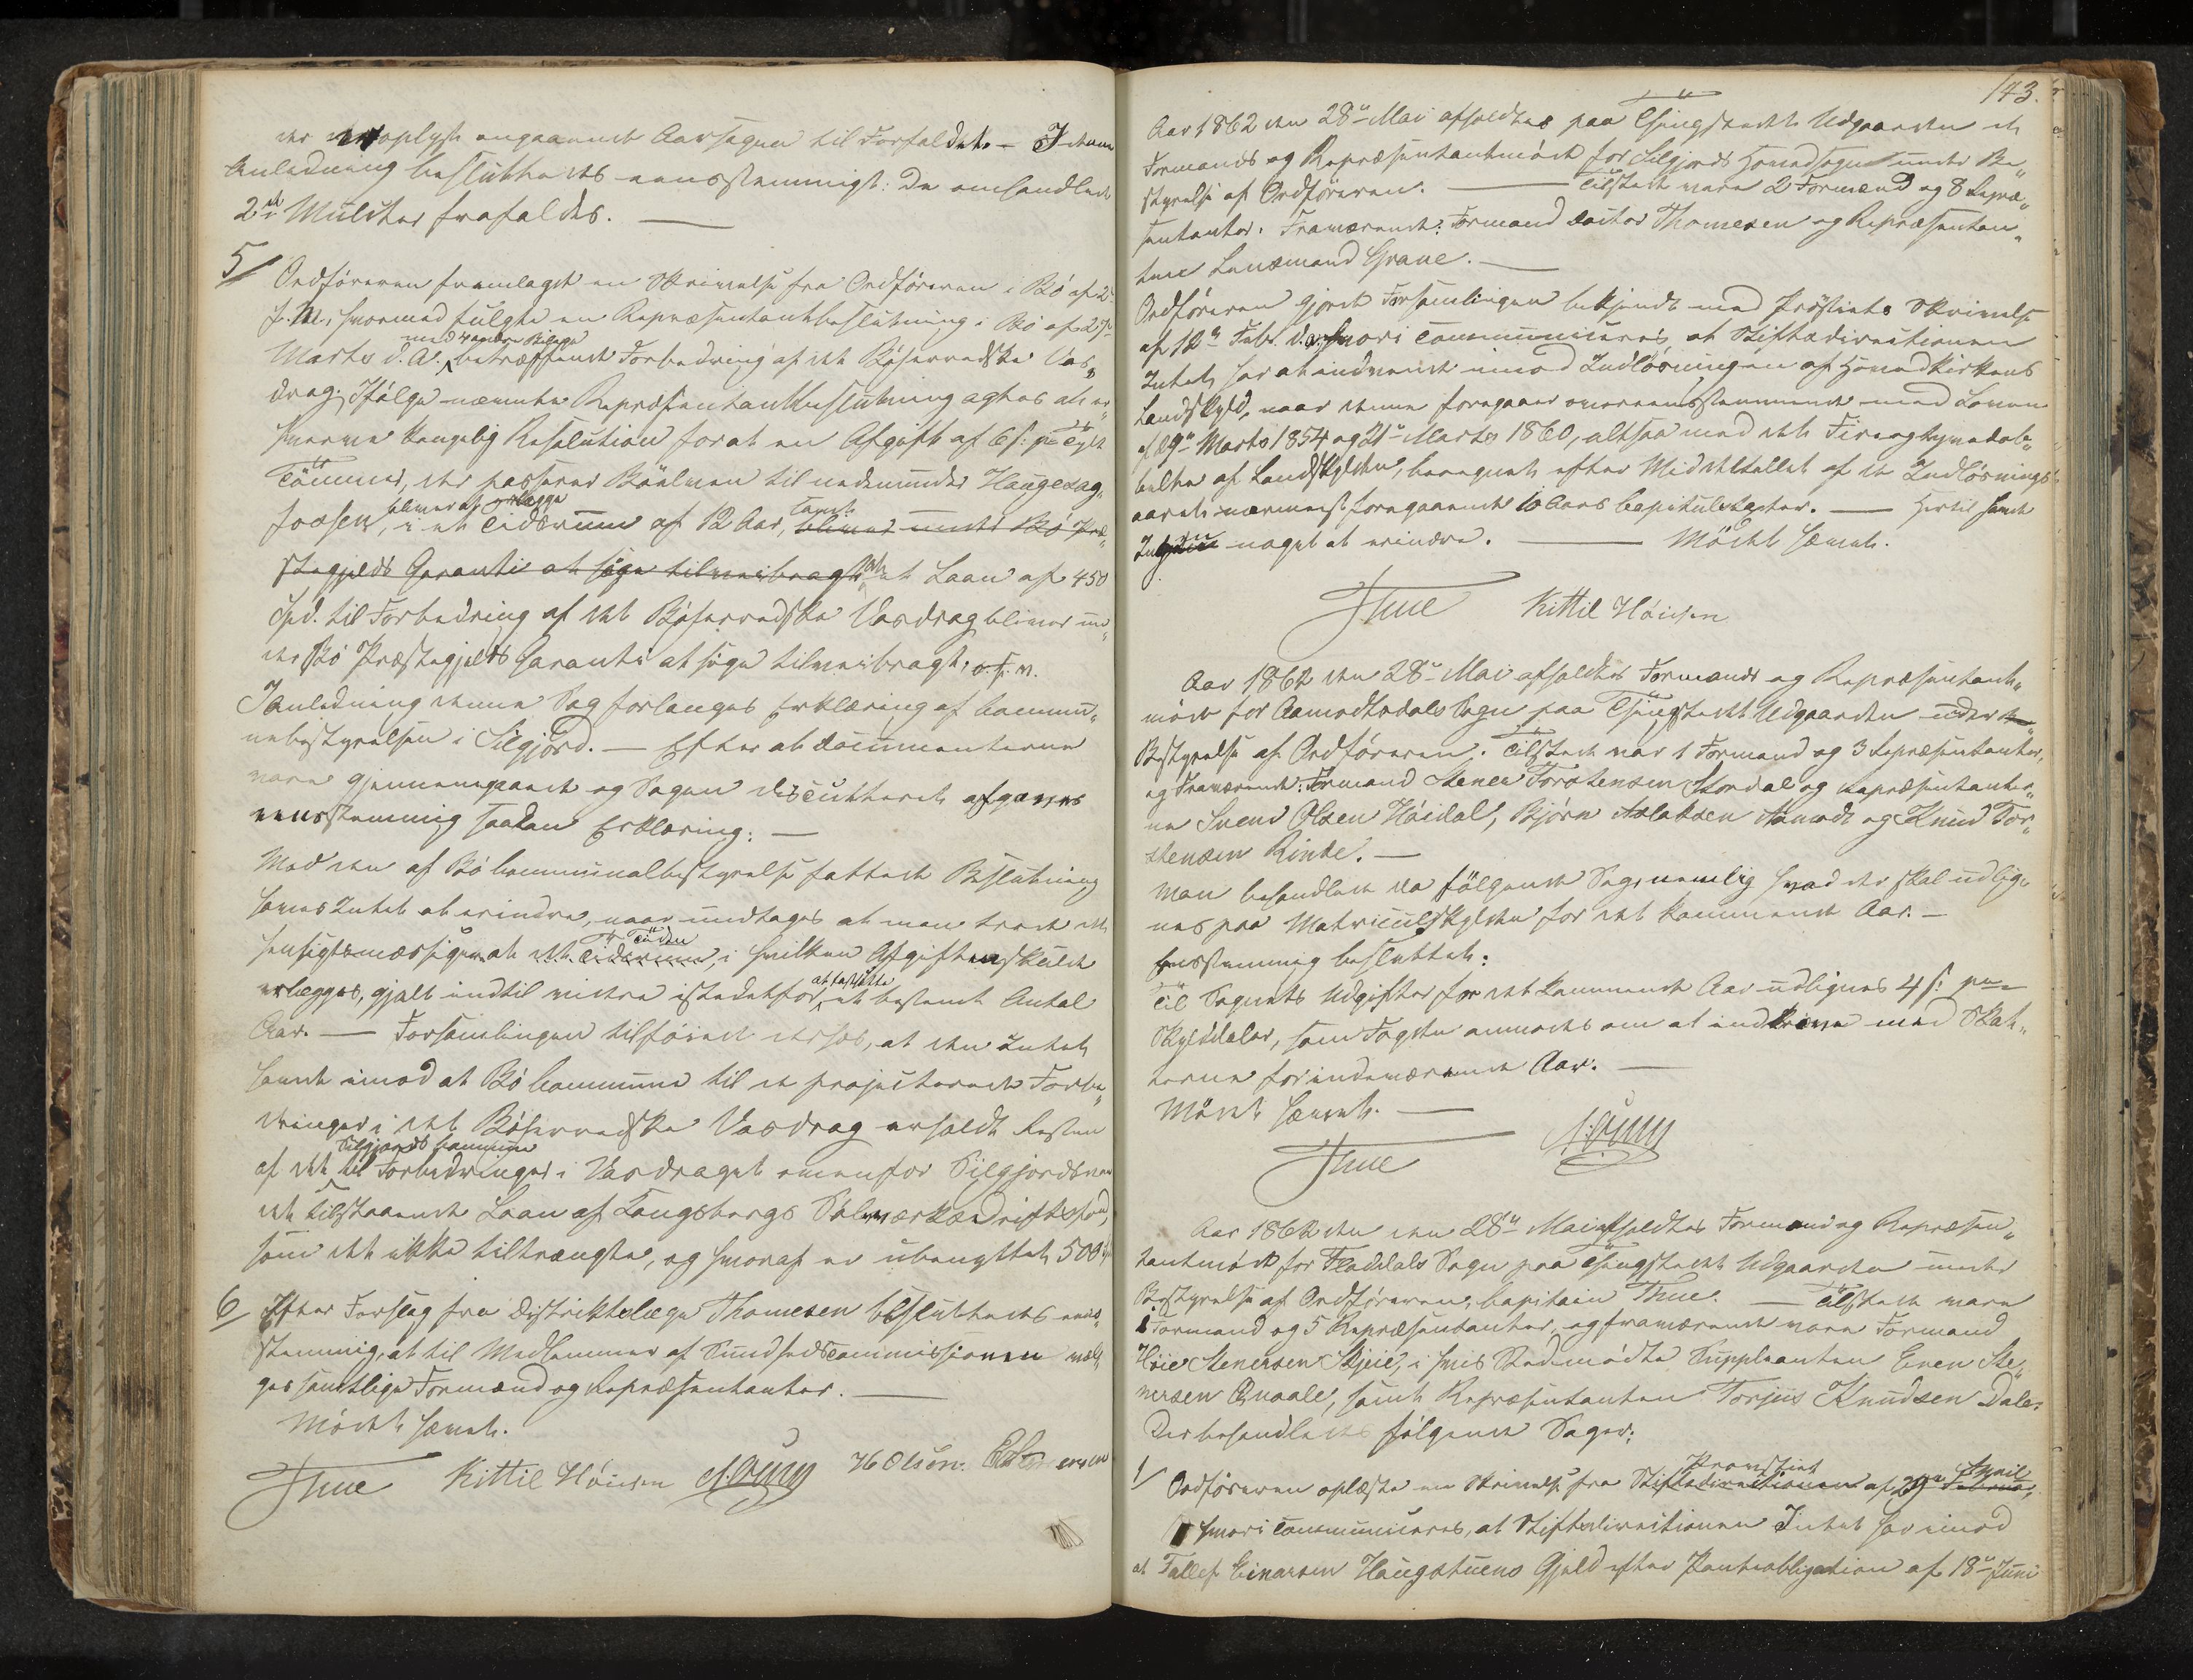 der oplyst angaaende Aarsagen til Forfaldet. – I denne
Anledning besluttedes eensstemmigt: De omhandlede
2de Mulcter frafaldes. —
5/ Ordføreren fremlagde en Skrivelse fra Ordføreren i Bö af 2
f. M., hvormed fulgte en Repræsentantbeslutning i Bö af 27
med andre Bilage
Marts d. A., betræffende Forbedring af det Böherredske Vas„
drag. Ifölge nævnte Repræsentantbeslutning agtes at er„
hverve kongelig Resolution for at en Afgift af 6 s: pr Tylt
Tömmer, der passerer Böelven til nedenunder Haugesag„
bliver at erlægge
fossen, i et Tidsrum af 12 Aar, samt bliver under Bö Præ„
stegjelds Garanti at söge tilveiebragt et Laan af 450
Spd. til Forbedring af det Böherredske Vasdrag bliver un„
der Bö Præstegjelds Garanti at söge tilveiebragt, o. s. v.
I Anledning denne Sag forlanges Erklæring af Commu„
nebestyrelsen i Silgjord. — Efter at Documenterne
vare gjennemgaaede og Sagen discutteret afgaves
eensstemmig saadan Erklæring: —
Med den af Bö Communalbestyrelse fattede Beslutning
haves Intet at erindre, naar undtages at man troede det
Tiden
hensigtsmæssigere at det Tidsrum, i hvilken Afgiften skulde
at fastsætte
erlægges, gjaldt indtil videre istedetfor et bestemt Antal
Aar. — Forsamlingen tilföiede derhos, at den Intet
havde imod at Bö Commune til de projecterede Forbe„
dringer i det Böherredske Vasdrag erholdt Resten
Silgjords Commune
af det til Forbedringer i Vasdraget ovenfor Silgjordsvan
det tilstaaende Laan af Kongsbergs Sölvværksdriftsfond,
som det ikke tiltrængte, og hvoraf er ubenyttet 500
6/ Efter Forslag fra Distriktslæge Thomesen besluttedes eens„
stemmig, at til Medlemmer af Sundhedscommissionen væl„
ges samtlige Formænd og Repræsentanter. —
Mödet hævet.
Thue Kittil Höisen H Olsen.
143.
Aar 1862 den 28de Mai afholdtes paa Thingstedet Udgaarden et
Formands og Repræsentantmöde for Silgjords Hovedsogn under Be„
styrelse af Ordföreren. — Tilstede vare 2 Formænd og 8 Repræ„
sentanter. Fraværende: Formand Doctor Thomesen og Repræsentan„
tene Lensmand Grave. —
Ordföreren gjorde Forsamlingen bekjendt med Provstiets Skrivelse
af 12te Febr. d. A. hvori communiceres, at Stiftsdirectionen
Intet har at indvende imod Indlösningen af Hovedkirkens
Landskyld, naar denne foregaaer overeensstemmende med Loven
af 29de Marts 1854 og 21de Marts 1860, altsaa med det Fireogtyvedob„
belte af Landskylden, beregnet efter Middeltallet af de Indlösnings„
aaret nærmest foregaaende 10 Aars Capitulstaxter. — Hertil havde
Ingen noget at erindre. — Mödet hævet.
Thue Kittil Höisen
Aar 1862 den 28de Mai afholdtes Formands og Repræsentant„
möde for Aamodtsdals Sogn paa Thingstedet Udgaarden under
Bestyrelse af Ordföreren. Tilstede var 1 Formand og 3 Repræsentanter,
og Fraværende: Formand Stener Torstensen Stordal og Repræsentanter„
ne Svend Olsen Höidal, Björn Aslaksen Aamodt og Knud Tor„
stensen Rinde. —
Man behandlede da fölgende Sag, nemlig hvad der skal udlig„
nes paa Matriculskylden for det kommende Aar. —
Eensstemmig besluttet:
Til Sognets Udgifter for det kommende Aar udlignes 4 s: pr
Skylddaler, som Fogden anmodes om at indkræve med Skat„
terne for indeværende Aar. —
Mödet hævet. —
Thue
Aar 1862 den den 28de Mai afholdtes Formand og Repræsen„
tantmöde for Flatdals Sogn paa Thingstedet Udgaarden under
Bestyrelse af Ordföreren, Capitain Thue. — Tilstede vare
1 Formand og 5 Repræsentanter, og fraværende vare Formand
Höie Stenersen Skjeie, i hvis Sted mödte Suppleanten Even Ste„
nersen Qvaale, samt Repræsentanten Torjus Knudsen Dale.
Der behandledes fölgende Sager:
Provstiet April
1/ Ordföreren oplæste en Skrivelse fra Stiftsdirectionen af 29de Februar,
hvori communiceres, at Stiftsdirectionen Intet har imod
at Tallef Einarsen Haugstuens Gjeld efter Panteobligation af 18de Juni